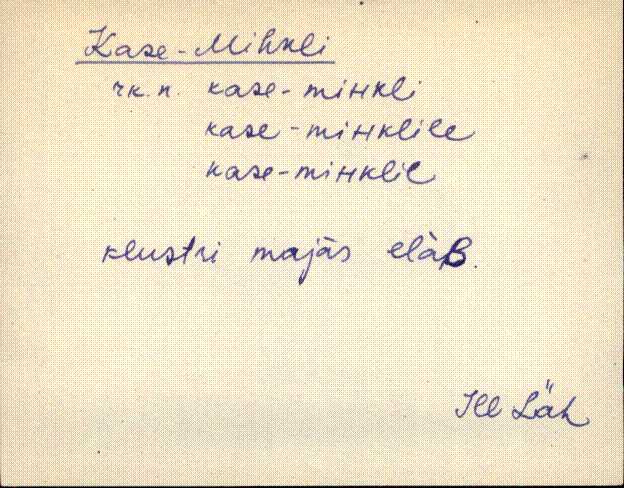 Kase-Mihkli
rk. n. kase-miʜkli
kase-miʜklile
kase-miʜklil
klustri majàs elàʙ.
Hll Läh